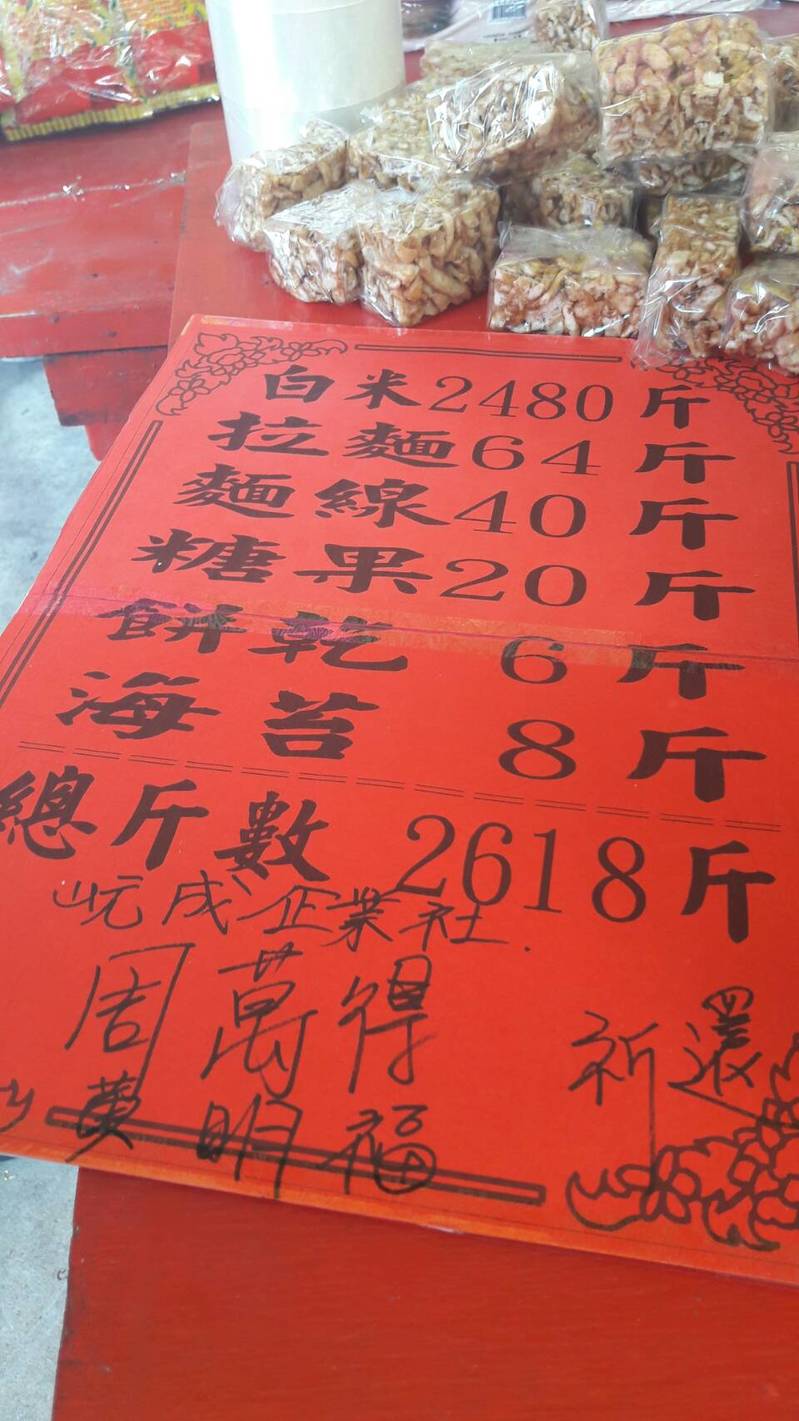 白米2480斤
拉麵64斤
麵線40斤
糖果20斤
餅乾 6斤
海苔 8斤
總斤數 2618斤
岏成企業社
周萬得
黃明福
祈還